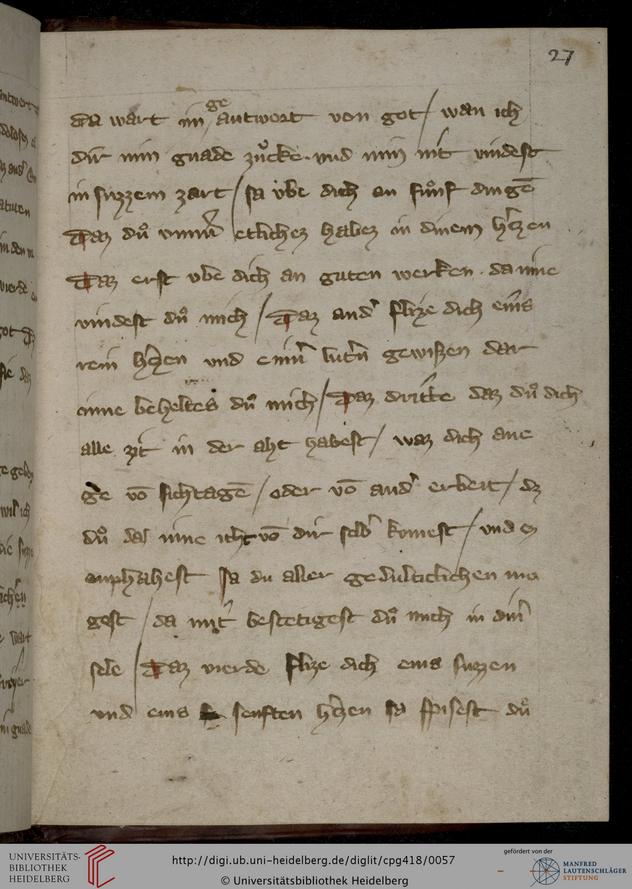 27
da wart im geantwort von got / wan ich
dir min gnade zuͦcke vnd min nit vindest
in suzzem zart / sa vbe dich an fuͦnf dingē
Daz duͦ etlichez habez in dinem hꝛ̄zen
Daz erst vbe dich an guten werken · da inne
vindest duͦ mich / Daz and' flize dich eins
rein h'zen vnd einr̄ lut'n gewizzen dar
inne beheltes duͦ mich / Daz dritte daz duͦ dich
alle zit in der aht habest / waz dich ane
ge vō sichtagē / oder vō and' erbeit / dz
duͦ daz iht vō dir selb' komest / vnd ez
enphahest sa du aller gedulticlichen mu
gest / da mit bestetigest duͦ mich in din'
sele / Daz vierde flize dich eins suzzen
vnd eins senften h'zen sa spisest duͦ
UNIVERSITÄTS-
BIBLIOTHEK
HEIDELBERG
http://digi.ub.uni-heidelberg.de/diglit/cpg418/0057
© Universitätsbibliothek Heidelberg
gefördert von der
MANFRED
LAUTENSCHLÄGER
STIFTUNG